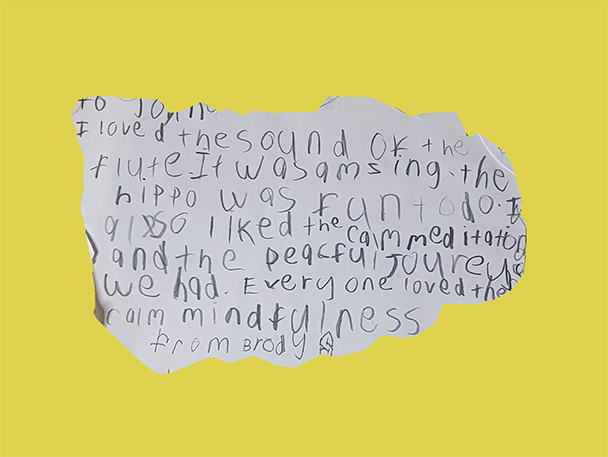 to John
I loved the sound OF the
flute. It was amsing. the
hippo was fun to do. I
alxso liked the calm meditation
and the peacful Jourey
we had. Every one loved the
calm mindfulness
from Brody